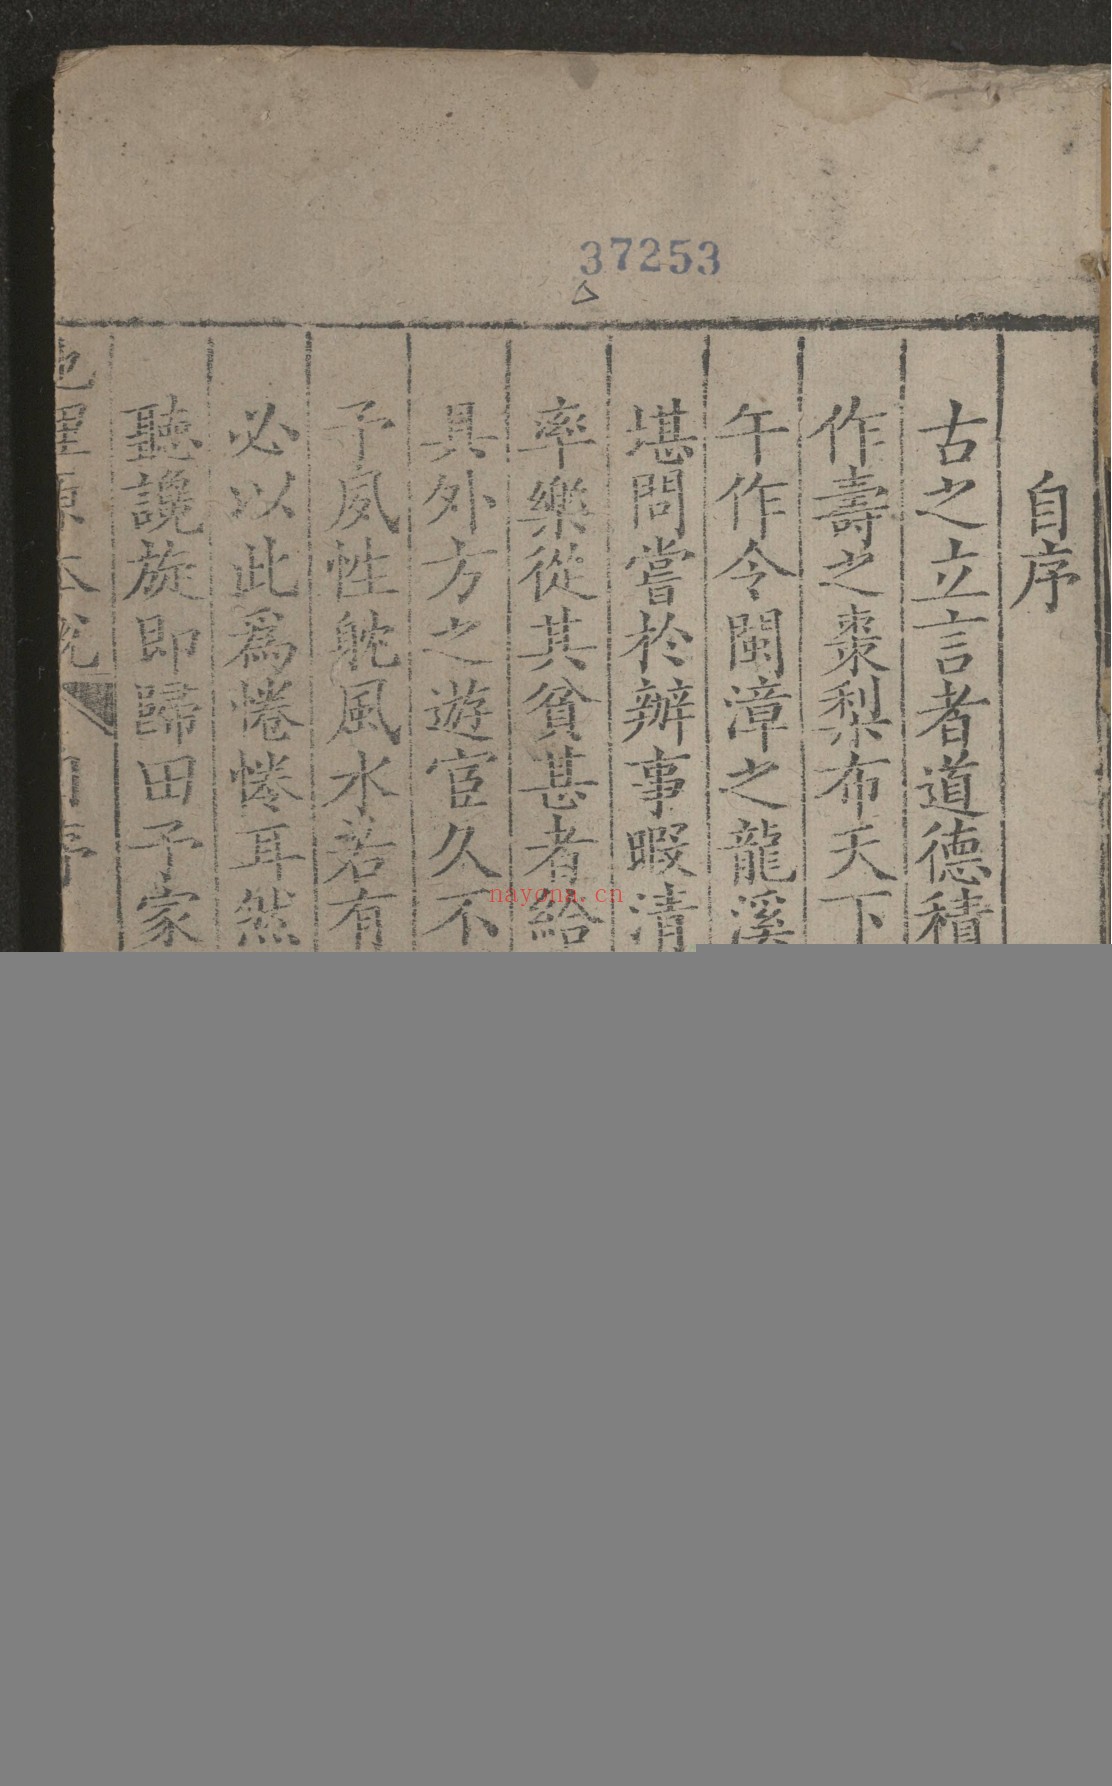 37253
自序
古之立言者道德積
作壽之棗梨布天下
午作令閩漳之龍溪
堪問嘗於辦事暇清
率樂從其貧甚者給
具外方之遊宦久不
予夙性躭風水若有
必以此為惓惓耳然
聽讒旋即歸田予家
地理原本說
nayona.cn